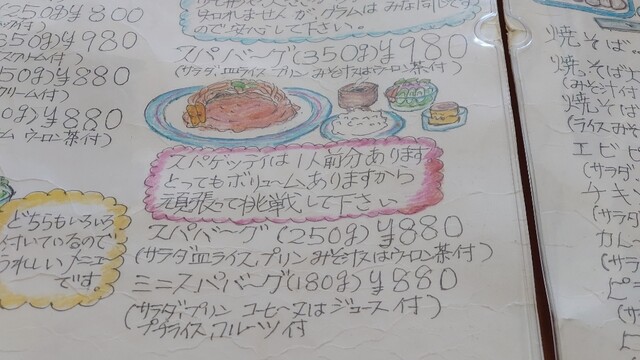 (250g)¥800
350g)¥980
50g)¥880
0g)¥880
ウーロン茶付)
どちらもいろいろ
付いているので
うれしいメニュー
です。
ので安心して下さい。
スパバーグ(350g)¥980
(サラダ、皿ライス、プリン みそ汁又はウーロン茶付)
スパゲッティは1人前分あります
とってもボリュームありますから
頑張って挑戦して下さい
スパバーグ(250g)¥880
(サラダ、皿ライス、プリン みそ汁又はウーロン茶付)
ミニスパバーグ(180g)¥880
(サラダ、プリン コーヒー又はジュース付)
プチライス、フルーツ付
焼そば
焼そば
(みそ汁付
焼そば
(ライスみ
エビピ
(サラダ
チキ
(サラダ
カレ
(サラ
ピ
(サ